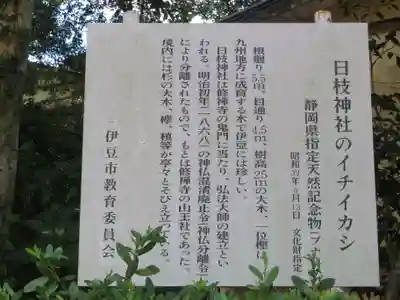 日枝神社のイチイカシ
静岡県指定天然記念物
昭和 月 日 文化財指定
根廻り5.5m、目通り4.5m、樹高25mの大木、一位樫は、
九州地方に成育する木で伊豆には珍しい。
日枝神社は修禅寺の鬼門に当たり、弘法大師の建立とい
われる。明治初年(一八六八)の神仏混淆廃止令(神仏分離令)
により分離されたもので、もとは修禅寺の山王社であった。
境内には杉の大木、欅、槇等が亭々とそびえ立っている。
伊豆市教育委員会